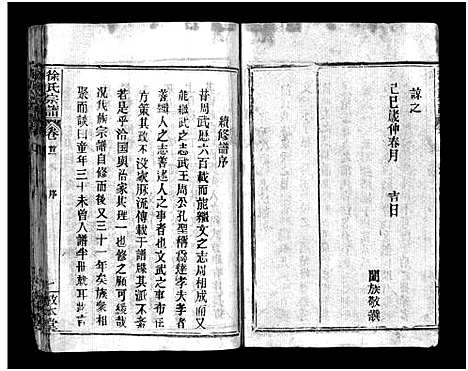 諒之
己巳歲仲春月 吉日
闔族敬譔
續修譜序
昔周武歷六百載而能纘文之志周相成而又
能繼武之志武王周公孔聖稱為達孝夫孝者
善繼人之志善述人之事者也文武之事業
布策其政不沒家厥流傳載于譜牒其派不紊
若是乎治國與治家其理一也修之顧可緩哉
況我族宗譜自修而後又三十一年矣族眾相
聚而談曰童年三十未曾入譜半冊幾耳
徐氏宗譜 卷首 序 一